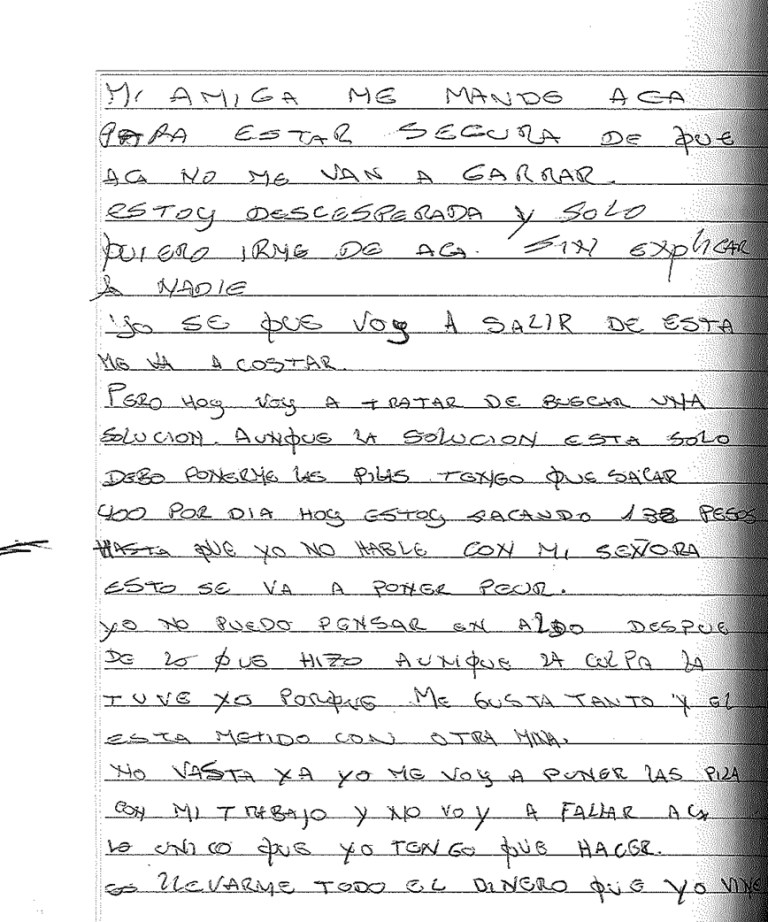 MI AMIGA ME MANDO ACA
PARA ESTAR SEGURA DE QUE
ACA NO ME VAN A GARRAR.
ESTOY DESCESPERADA Y SOLO
QUIERO IRME DE ACA. SIN EXPLICAR
A NADIE
YO SE QUE VOY A SALIR DE ESTA
ME VA A COSTAR.
PERO HOY VOY A TRATAR DE BUSCAR UNA
SOLUCION. AUNQUE LA SOLUCION ESTA SOLO
DEBO PONERME LAS PILAS TENGO QUE SACAR
400 POR DIA HOY ESTOY SACANDO 138 PESOS
HASTA QUE YO NO HABLE CON MI SEÑORA
ESTO SE VA A PONER PEOR.
YO NO PUEDO PENSAR EN ALDO DESPUE
DE LO QUE HIZO AUNQUE LA CULPA LA
TUVE YO PORQUE ME GUSTA TANTO Y EL
ESTA METIDO CON OTRA MINA.
NO VASTA YA YO ME VOY A PONER LAS PILA
CON MI TRABAJO Y NO VOY A FALLAR ACA
LO UNICO QUE YO TENGO QUE HACER.
ES LLEVARME TODO EL DINERO QUE YO VINE